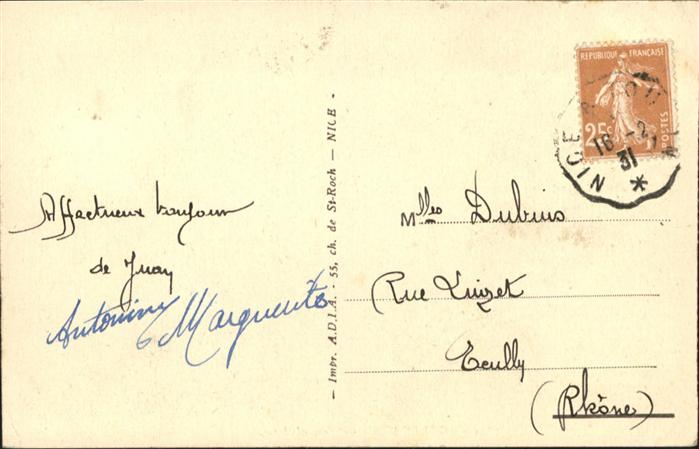 Affectueux bonjour
de Juan
Antonine Marguerite
- Impr. A.D.I.A. 55, ch. de St-Roch - NICE -
RÉPUBLIQUE FRANÇAISE
25c
POSTES
NICE
16 -2
31
Mlles Dubuis
Rue Luizet
Ecully
(Rhône)